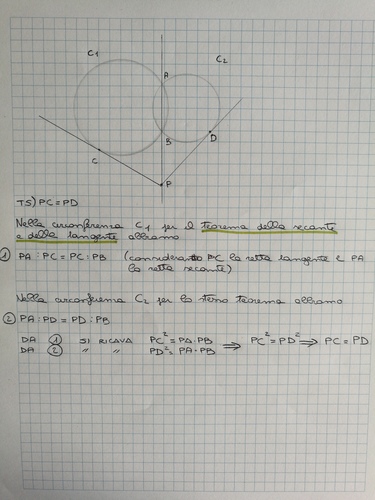 C1
C2
A
B
C
D
P
TS) PC = PD
Nella circonferenza C1 per il teorema della secante
e della tangente abbiamo
① PA : PC = PC : PB (considerando PC la retta tangente e PA
la retta secante)
Nella circonferenza C2 per lo stesso teorema abbiamo
② PA : PD = PD : PB
DA ① SI RICAVA PC² = PA · PB ⇒ PC² = PD² ⇒ PC = PD
DA ② " " PD² = PA · PB